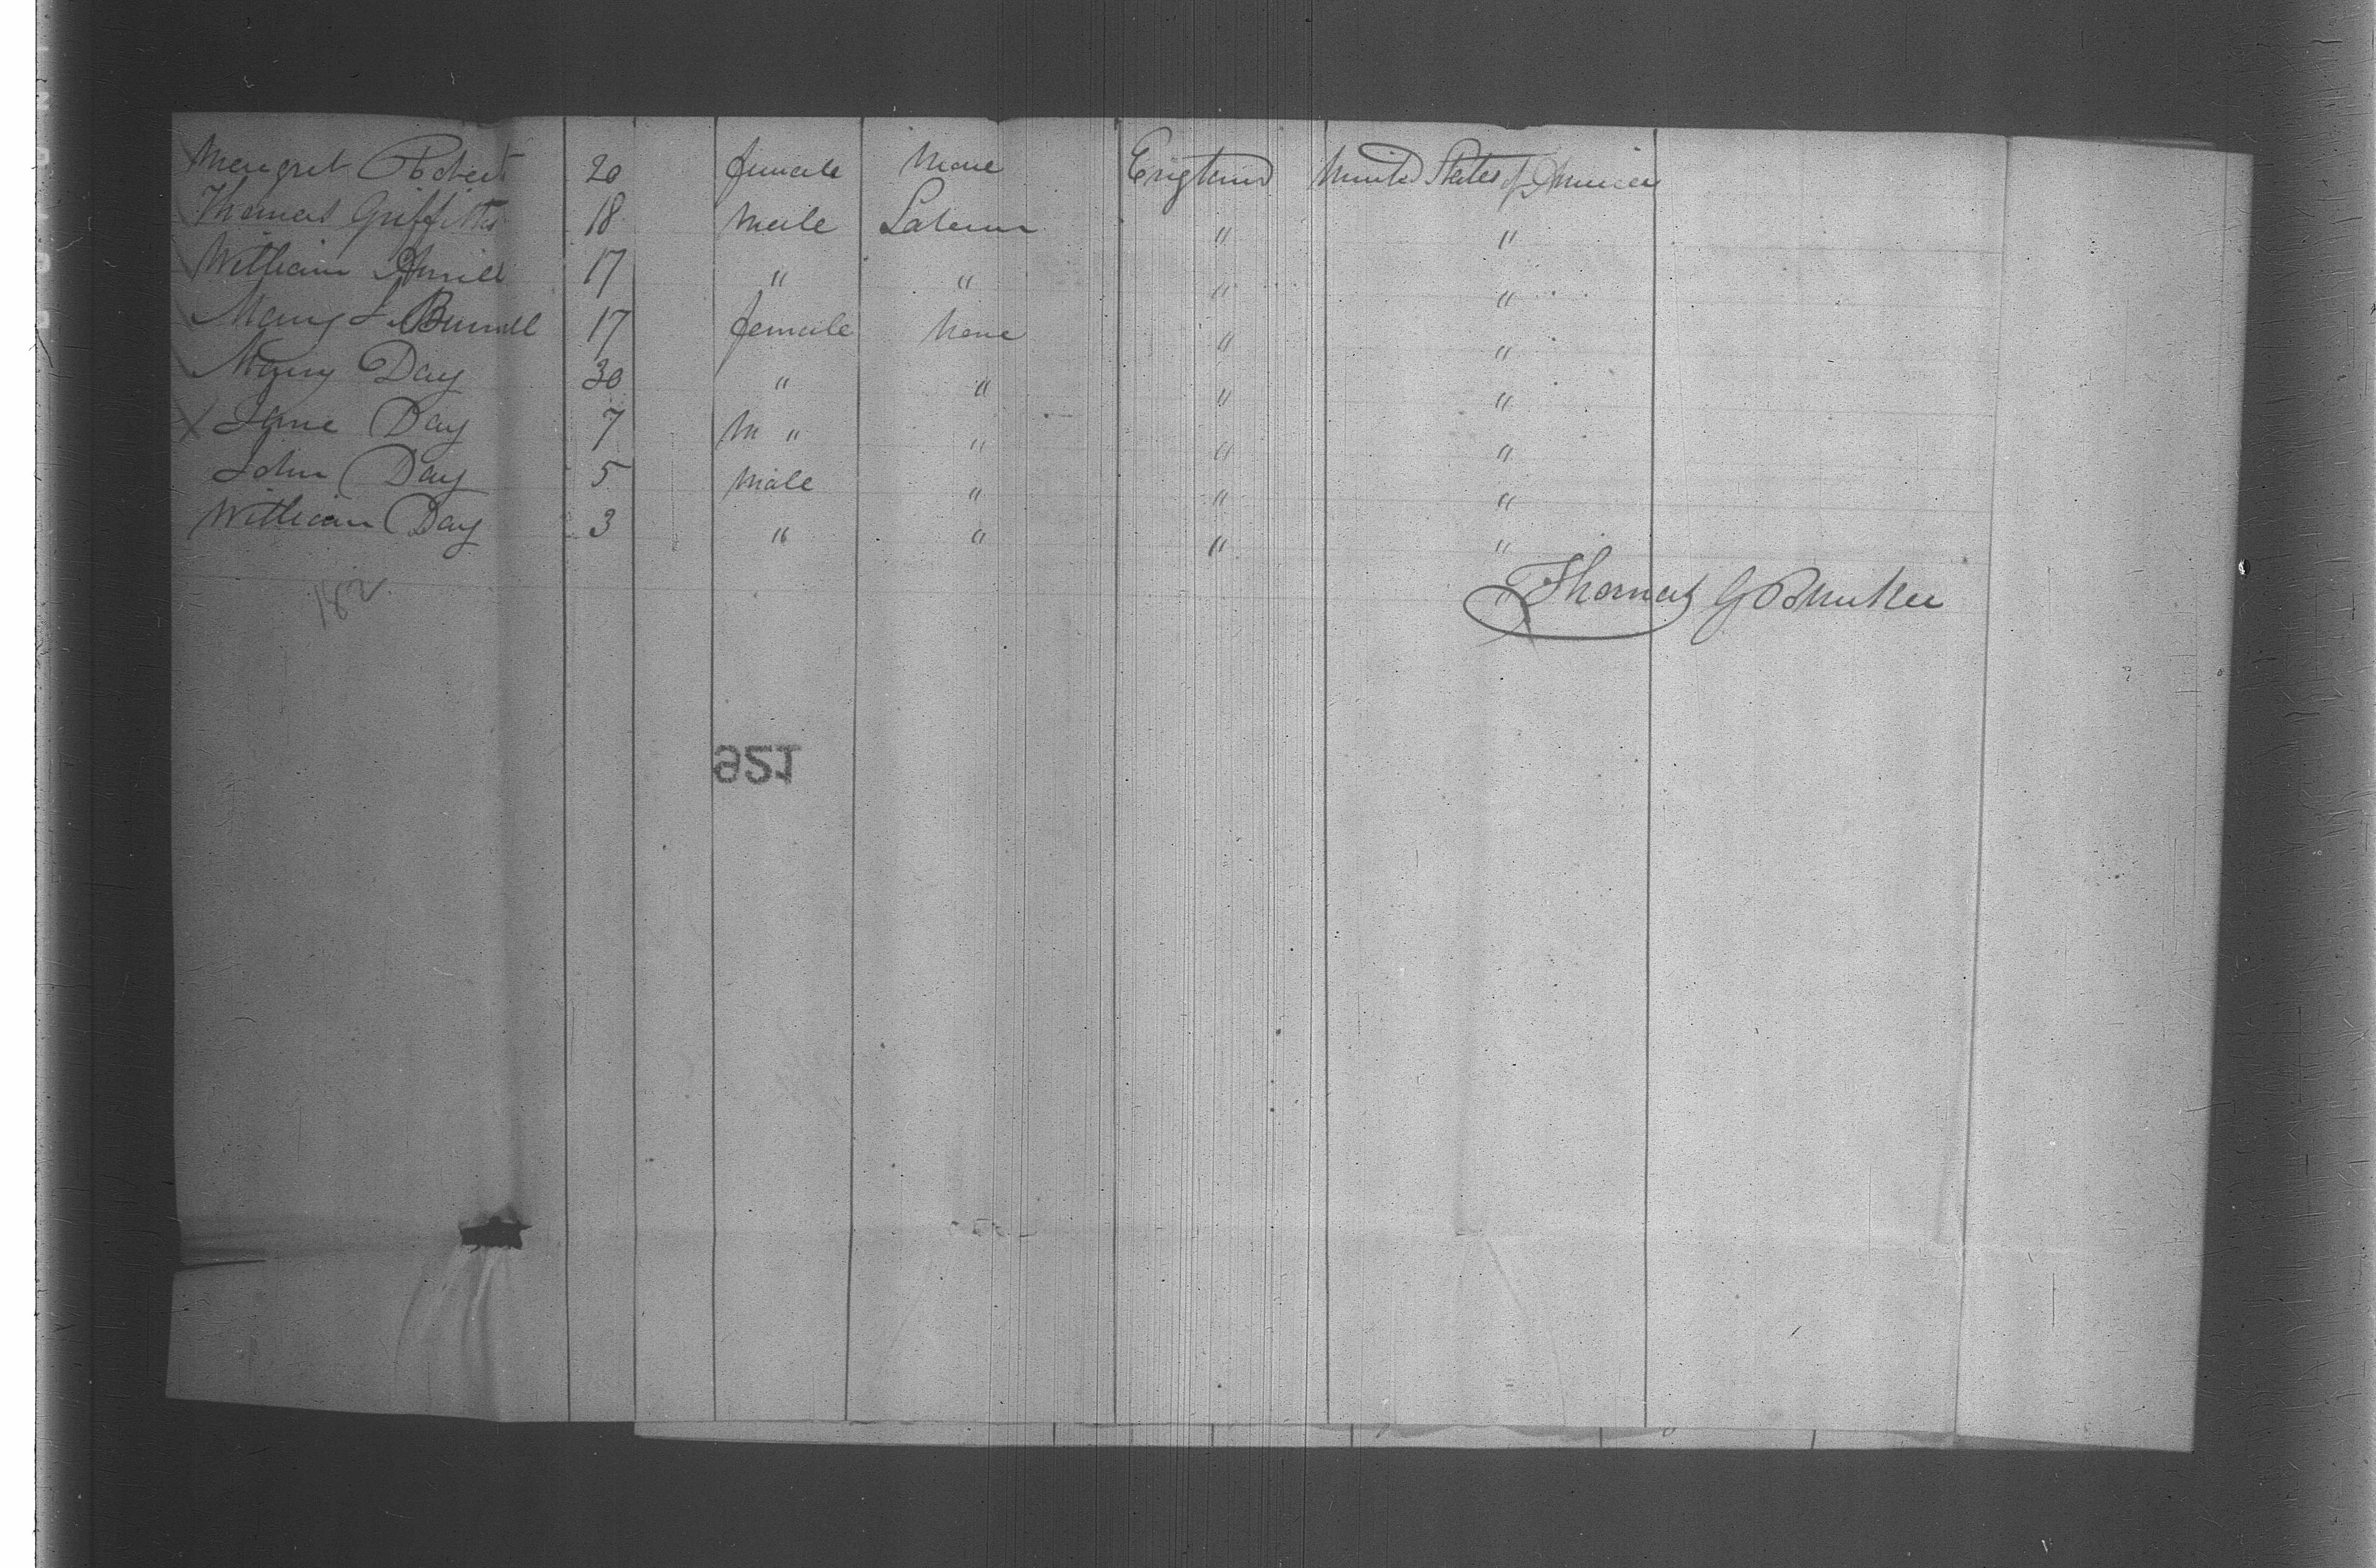 Margret Robert 20 female None England United States of America
Thomas Griffiths 18 Male Laborer " "
William 17 " " " "
Mary L Burrell 17 female None " "
Mary Day 30 " " " "
X Jane Day 7 M " " " "
John Day 5 Male " " "
William Day 3 " " " "
182
Thomas G Bunker
921